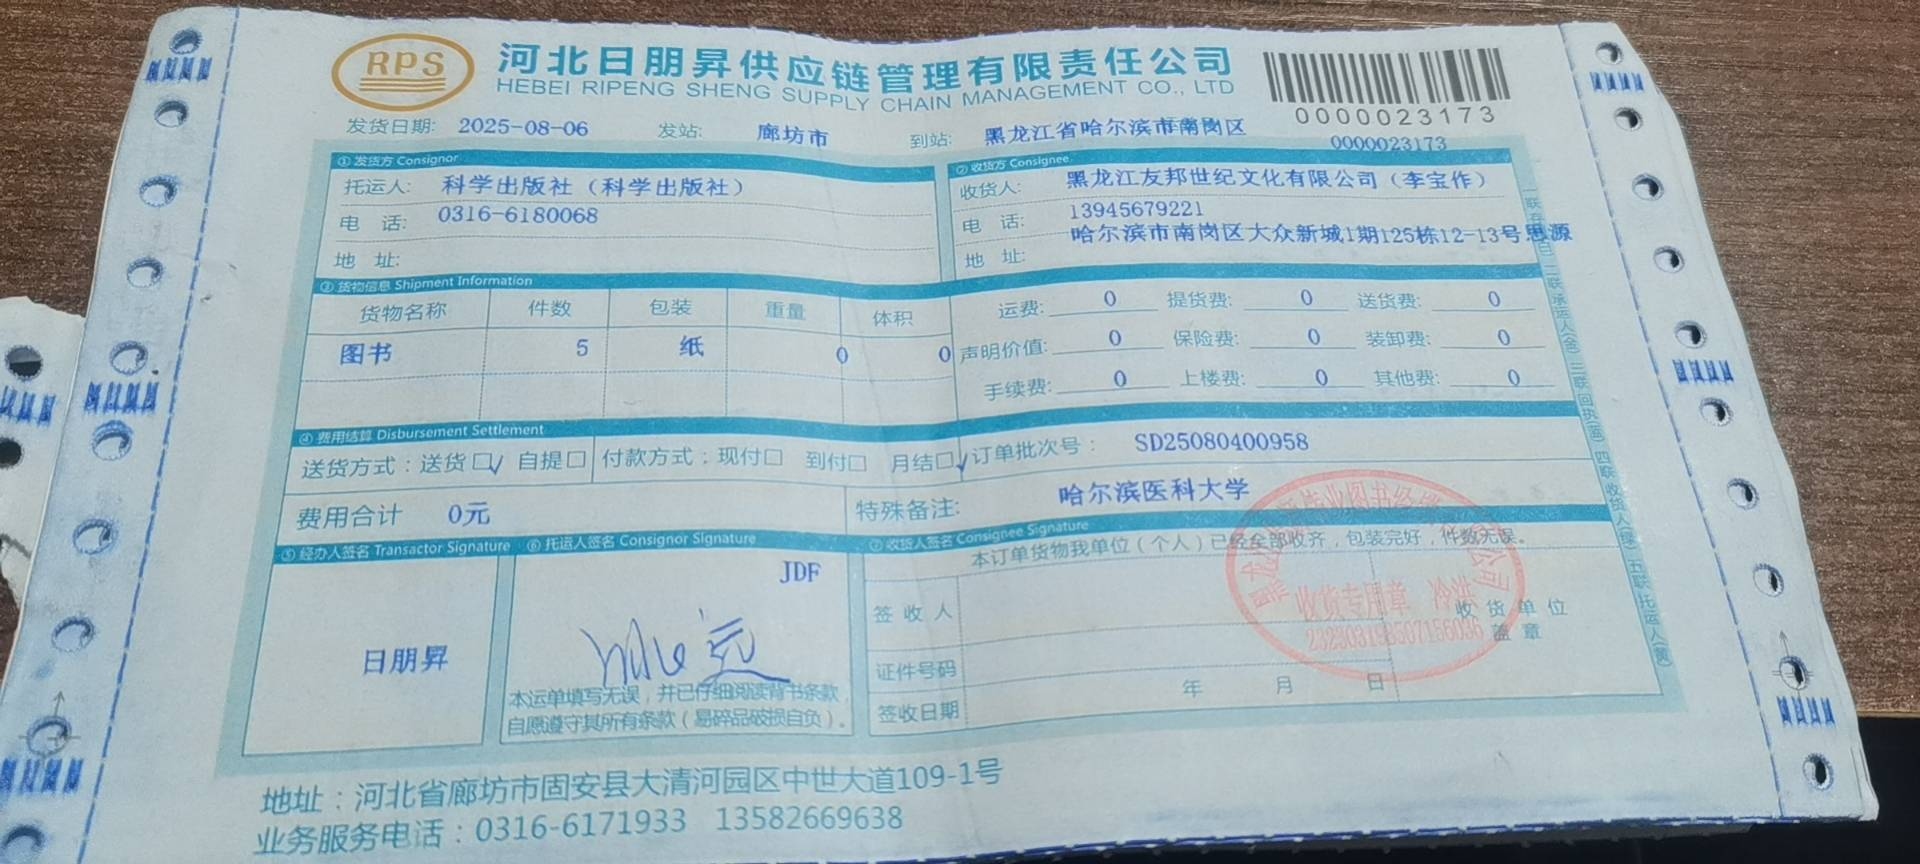 RPS
河北日朋昇供应链管理有限责任公司
HEBEI RIPENG SHENG SUPPLY CHAIN MANAGEMENT CO., LTD
0000023173
发货日期: 2025-08-06 发站: 廊坊市 到站: 黑龙江省哈尔滨市南岗区
0000023173
①发货方 Consignor
托运人: 科学出版社（科学出版社）
电 话: 0316-6180068
地 址:
②收货方 Consignee
收货人: 黑龙江友邦世纪文化有限公司（李宝作）
电 话: 13945679221
地 址: 哈尔滨市南岗区大众新城1期125栋12-13号思源
③货物信息 Shipment Information
货物名称 件数 包装 重量 体积
图书 5 纸 0 0
运费: 0 提货费: 0 送货费: 0
声明价值: 0 保险费: 0 装卸费: 0
手续费: 0 上楼费: 0 其他费: 0
④费用结算 Disbursement Settlement
送货方式：送货□√ 自提□ 付款方式：现付□ 到付□ 月结□√ 订单批次号： SD25080400958
费用合计 0元 特殊备注: 哈尔滨医科大学
⑤经办人签名 Transactor Signature
日朋昇
⑥托运人签名 Consignor Signature
JDF
本运单填写无误，并已仔细阅读背书条款
自愿遵守其所有条款（易碎品破损自负）。
⑦收货人签名 Consignee Signature
本订单货物我单位（个人）已经全部收齐，包装完好，件数无误。
签收人
收货单位
盖章
证件号码
签收日期 年 月 日
收货专用章
地址：河北省廊坊市固安县大清河园区中世大道109-1号
业务服务电话：0316-6171933 13582669638